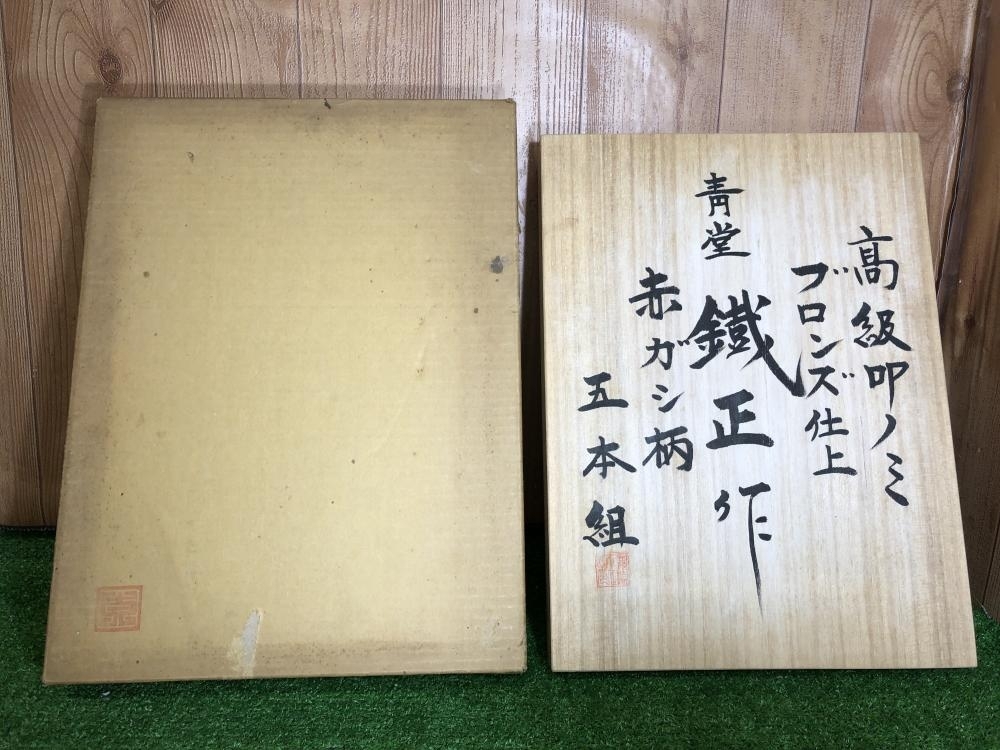 高級叩ノミ
ブロンズ仕上
青堂
鐵正作
赤ガシ柄
五本組